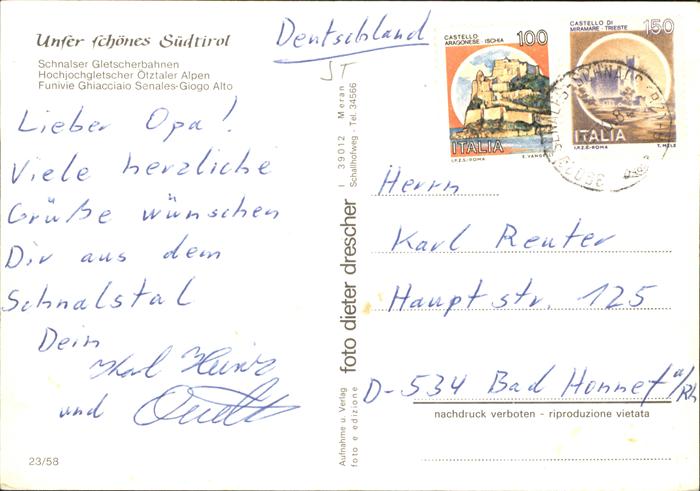 Unser schönes Südtirol
Schnalser Gletscherbahnen
Hochjochgletscher Ötztaler Alpen
Funivie Ghiacciaio Senales-Giogo Alto
Lieber Opa!
Viele herzliche
Grüße wünschen
Dir aus dem
Schnalstal
Dein
Karl Heinz
und
23/58
Aufnahme u. Verlag
foto e edizione
foto dieter drescher
I 39012 Meran
Schallhofweg - Tel. 34566
Deutschland
CASTELLO
ARAGONESE - ISCHIA
100
ITALIA
I.P.Z.S.-ROMA
CASTELLO DI
MIRAMARE - TRIESTE
150
ITALIA
I.P.Z.S.-ROMA
T. MELE
Herrn
Karl Reuter
Hauptstr. 125
D-534 Bad Honnef a/Rh
nachdruck verboten - riproduzione vietata